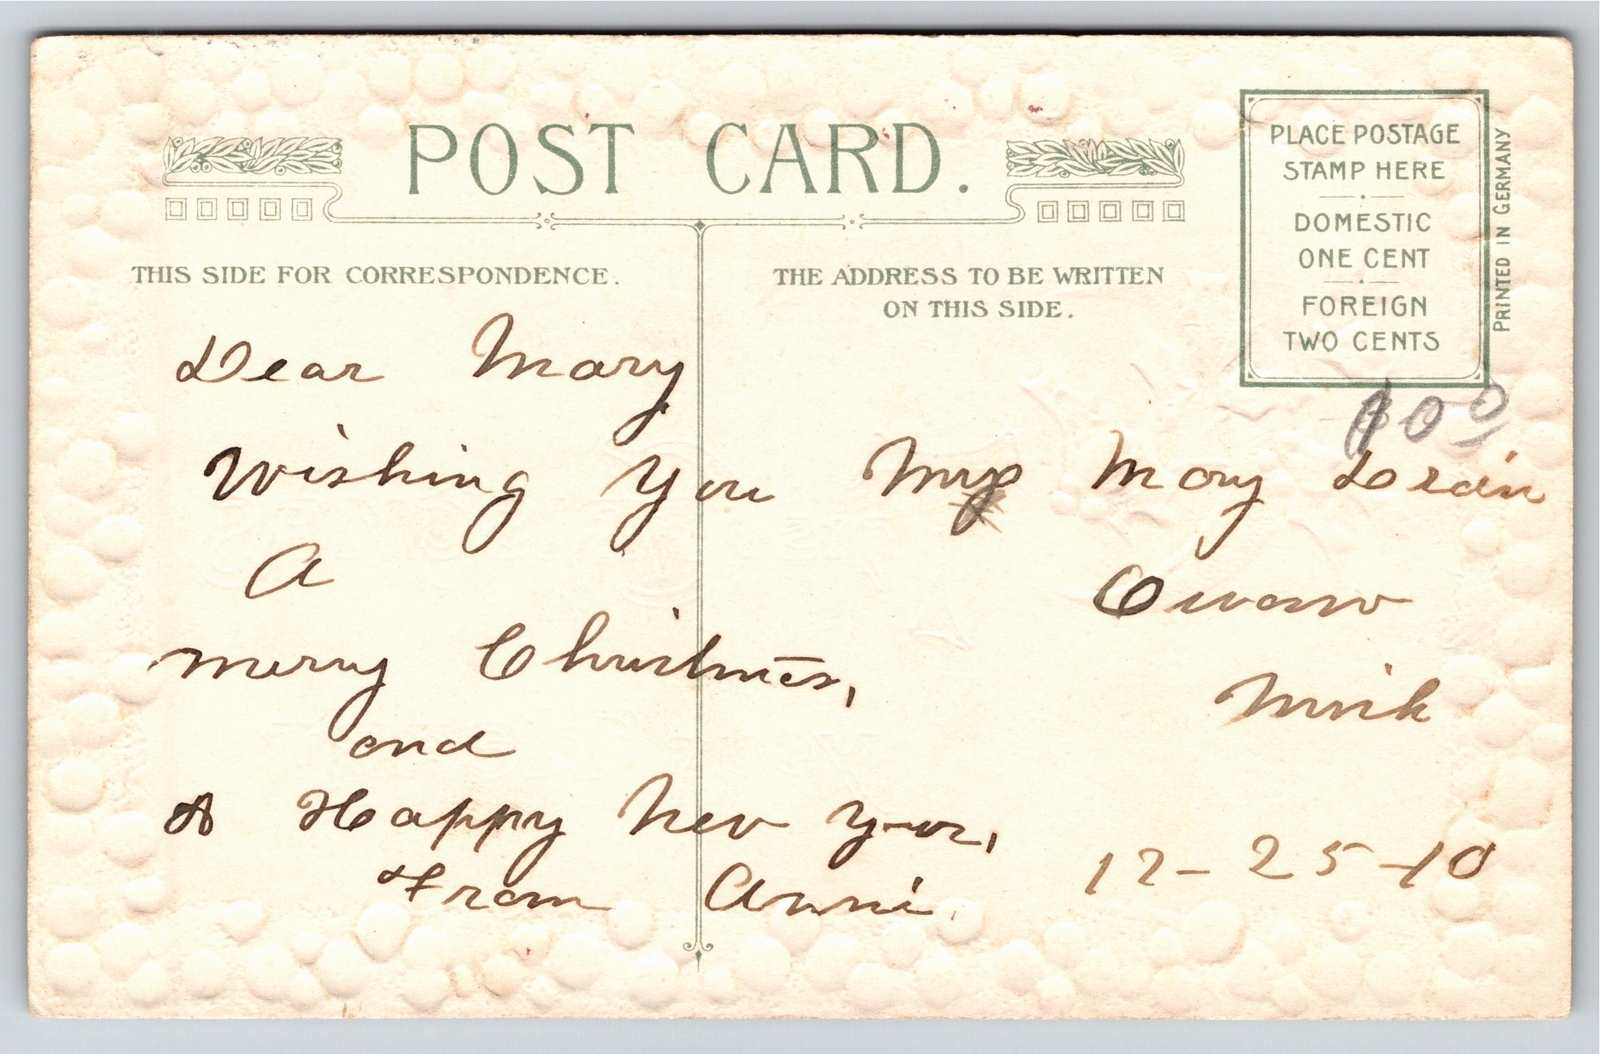 POST CARD.
PLACE POSTAGE
STAMP HERE
DOMESTIC
ONE CENT
FOREIGN
TWO CENTS
PRINTED IN GERMANY
THIS SIDE FOR CORRESPONDENCE.
THE ADDRESS TO BE WRITTEN
ON THIS SIDE.
Dear Mary
Wishing You
A
merry Christmas,
and
A Happy New Year,
From Anni
100
Mary
Owosso
Mich
12-25-10